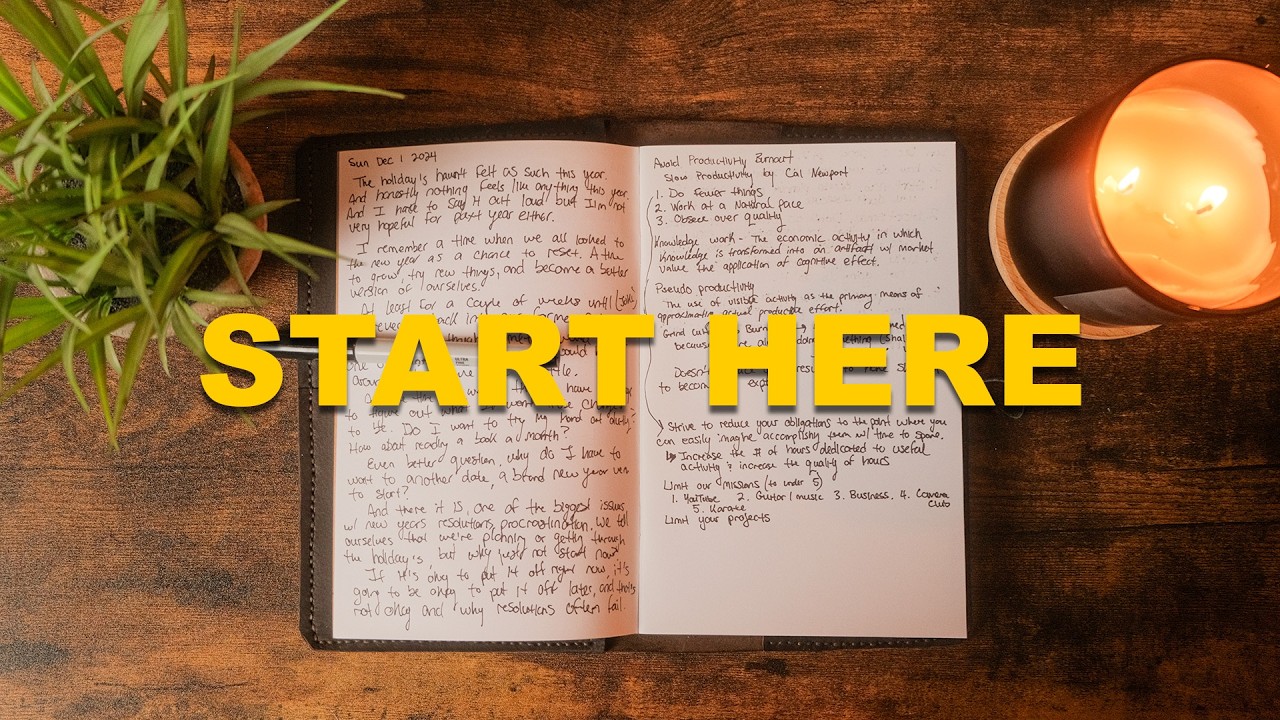 Sun Dec 1 2024
The holiday's haven't felt as such this year.
And honestly nothing feels like anything this year
And I hate to say it out loud but I'm not
very hopeful for next year either.
I remember a time when we all looked to
the new year as a chance to reset. A time
to grow, try new things, and become a better
version of ourselves.
At least for a couple of weeks until
back in
to figure out what
to be. Do I want to try my hand at
How about reading a book a month?
Even better question, why do I have to
wait to another date, a brand new year even
to start?
And there it is, one of the biggest issues
w/ new years resolutions, procrastination. We tell
ourselves that we're planning or getting through
the holiday's, but why just not start now?
If it's okay to put it off right now, it's
going to be okay to put it off later, and that's
not okay and why resolutions often fail.
START HERE
Avoid Productivity Burnout
Slow Productivity by Cal Newport
1. Do fewer things
2. Work at a Natural pace
3. Obsess over quality
Knowledge work - The economic activity in which
knowledge is transformed into an artifact w/ market
value the application of cognitive effect.
Pseudo productivity
The use of visible activity as the primary means of
approximating actual productive effort.
Grind
because
Doesn't
to become
Strive to reduce your obligations to the point where you
can easily imagine accomplishing them w/ time to spare.
Increase the # of hours dedicated to useful
activity & increase the quality of hours
Limit our missions (to under 5)
1. YouTube 2. Guitar/music 3. Business. 4. Camera
Club
5. Karate
Limit your projects